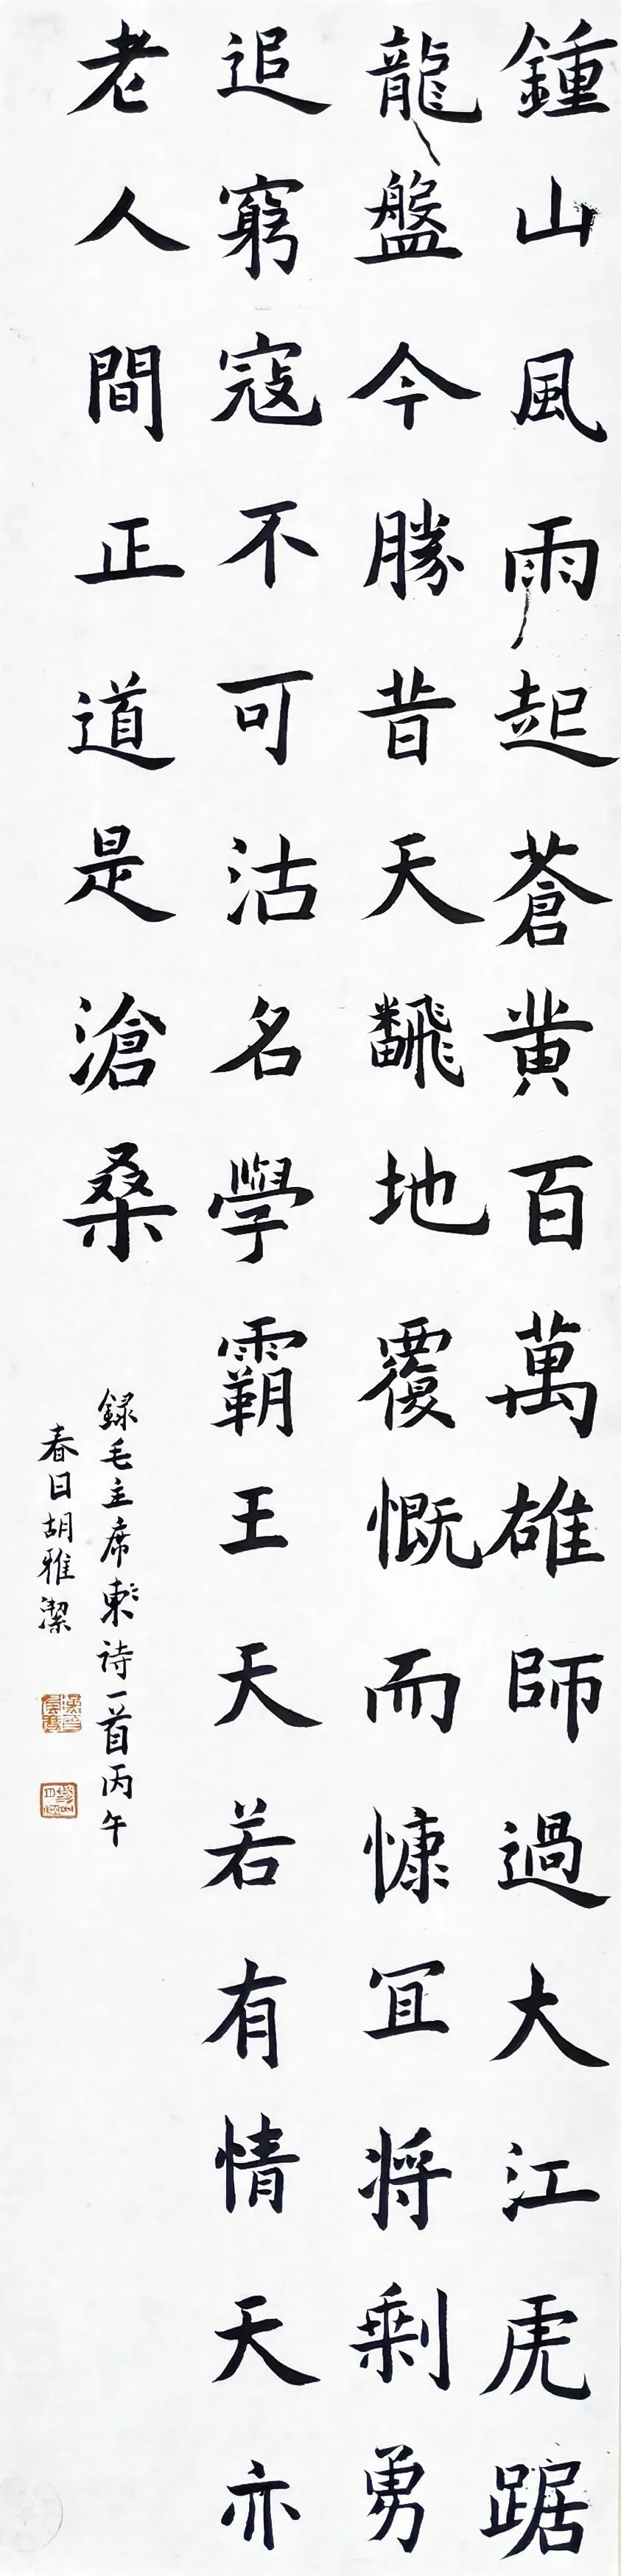 鍾山風雨起蒼黄百萬雄師過大江虎踞
龍盤今勝昔天飜地覆慨而慷冝將剩勇
追窮寇不可沽名學霸王天若有情天亦
老人間正道是滄桑
録毛主席詩一首丙午
春日胡雅潔